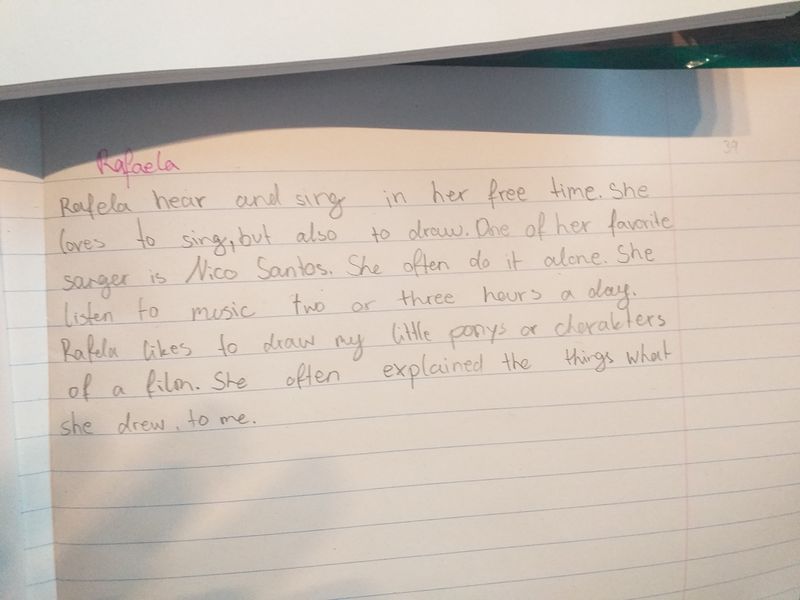 39
Rafaela
Rafela hear and sing in her free time. She
loves to sing, but also to draw. One of her favorite
sanger is Nico Santos. She often do it alone. She
listen to music two or three hours a day.
Rafela likes to draw my little ponys or charakters
of a film. She often explained the things what
she drew, to me.